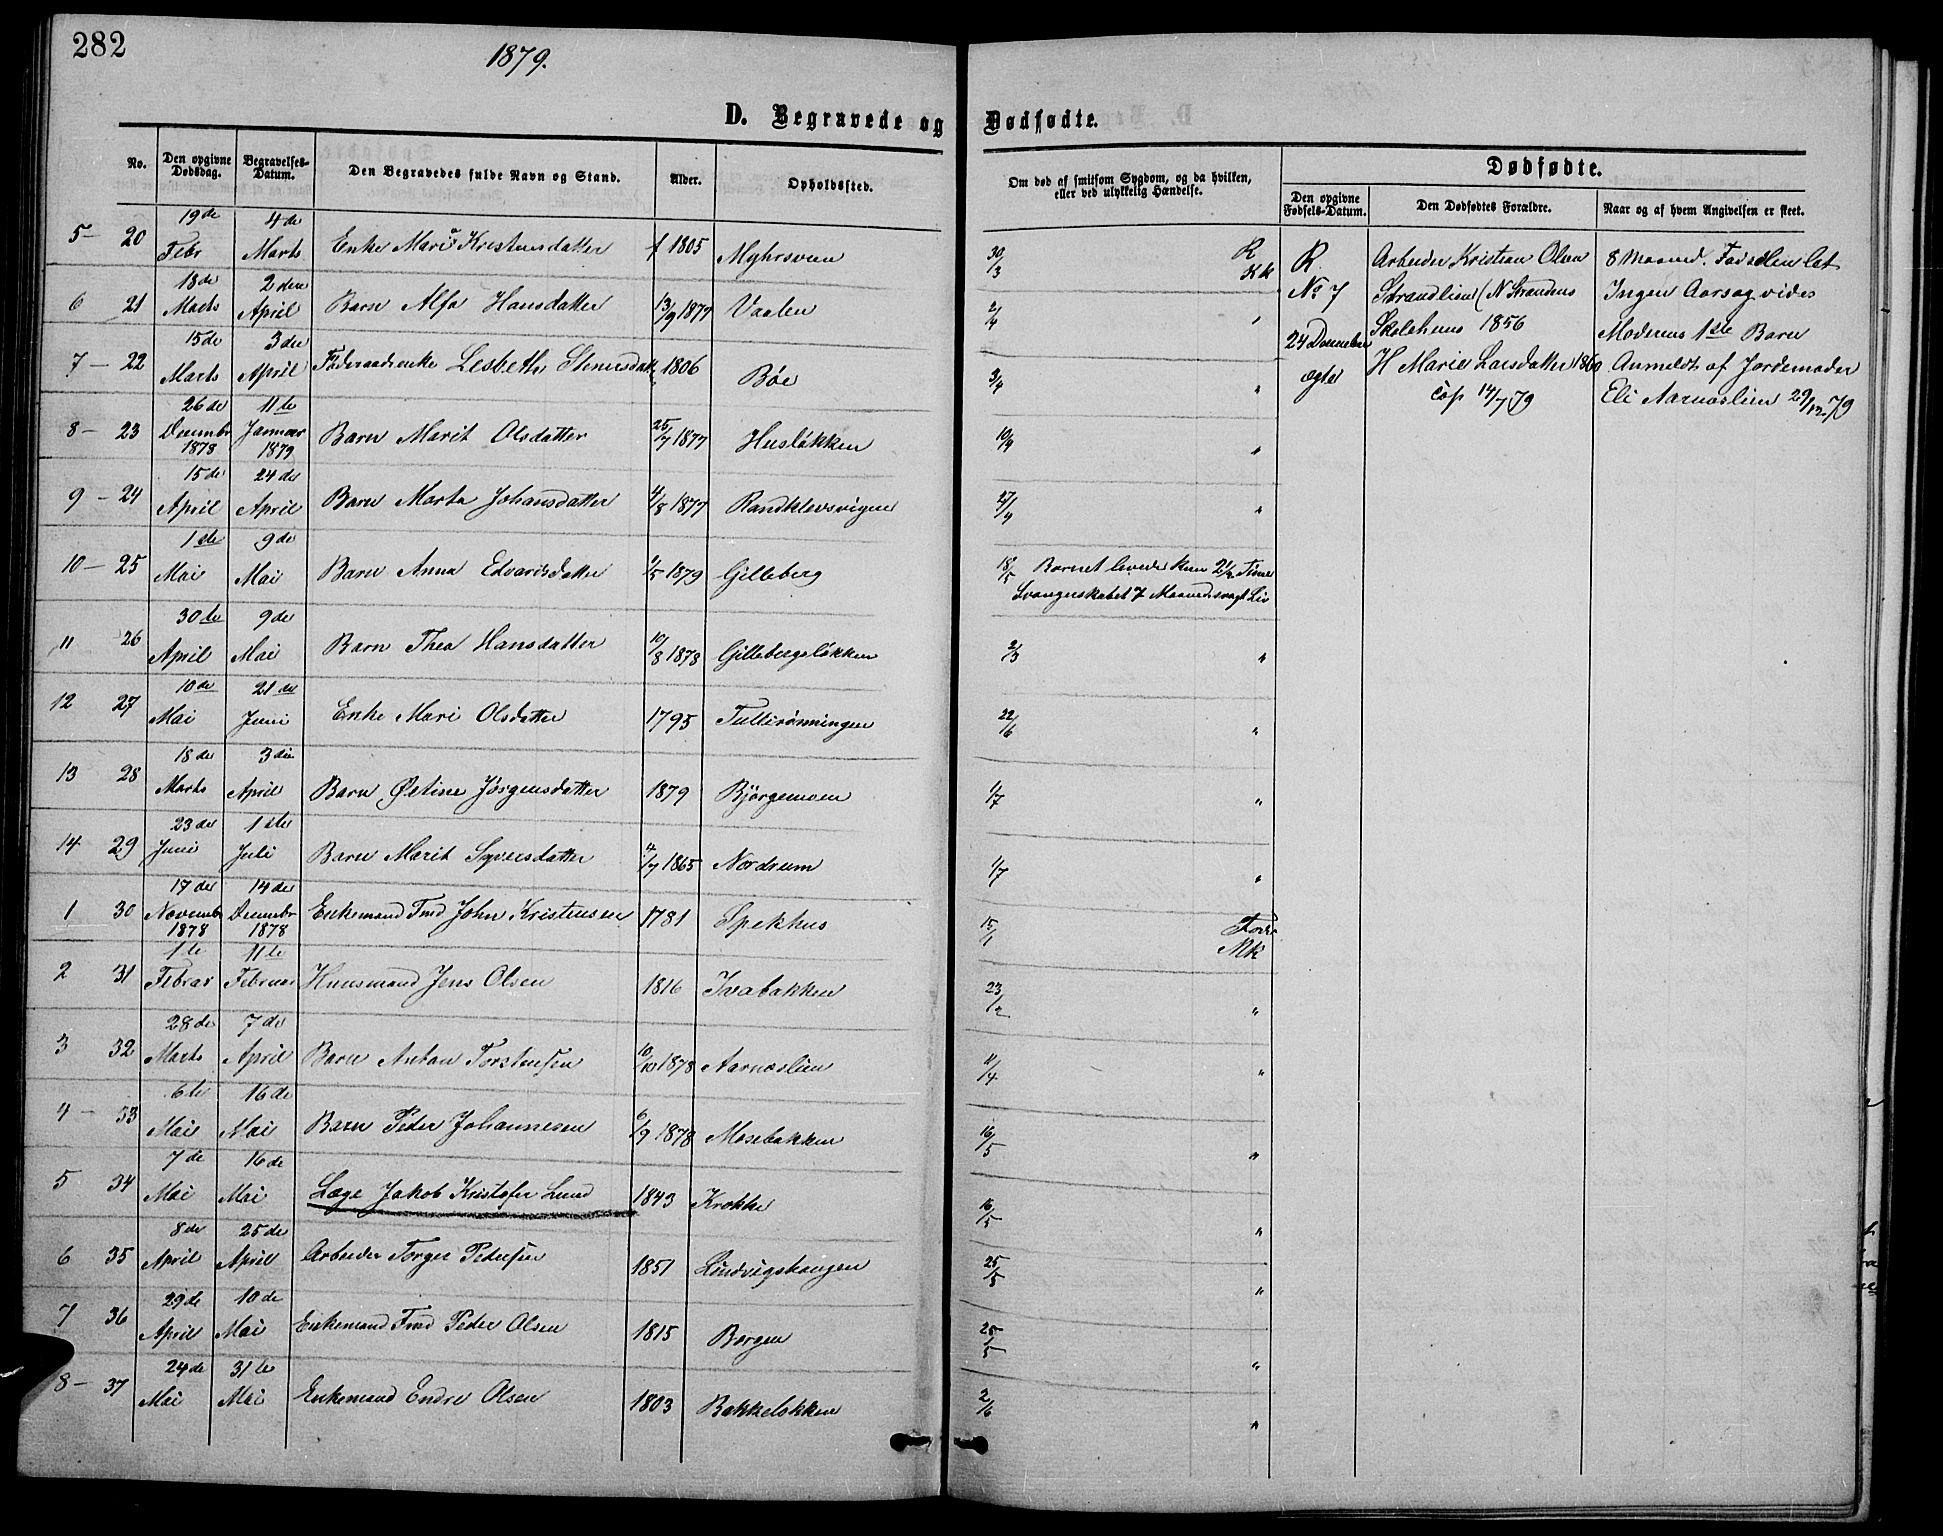 282
1879.
D. Begravede og Dødfødte.
No. Den opgivne Dødsdag. Begravelses-Datum. Den Begravedes fulde Navn og Stand. Alder. Opholdssted.
Om død af smitsom Sygdom, og da hvilken, eller ved ulykkelig Hændelse.
Dødfødte.
Den opgivne Fødsels-Datum. Den Dødfødtes Forældre. Naar og af hvem Angivelsen er skeet.
5 - 20 19de Febr 4de Marts Enke Mari Kristensdatter f 1805 30/3 R Kk
6 21 18de Marts 2den April Barn Alfa Hansdatter 13/9 1877 Vaalen 2/4 "
7 - 22 15de Marts 3die April Føderaadsenke Lesbeth Stenersdatt 1806 Bøe 3/4 "
8 - 23 26de Decembr 1878 11te Januar 1879 Barn Marit Olsdatter 25/7 1877 Husløkken "
9 - 24 15de April 24de April Barn Marta Johansdatter 4/8 1877 Randklevsvigen 27/4 "
10 - 25 1ste Mai 9de Mai Barn Anna Edvardsdatter 1/5 1879 Gilleberg 18/5 Barnet levede kun 2½ Time
Svangerskabet 7 Maaneder svagt Liv
11 26 30te April 9de Mai Barn Thea Hansdatter 10/8 1878 Gillebergsløkken 2/3 "
12 27 10de Mai 21de Juni Enke Mari Olsdatter 1795 Tullerønningen 22/6 "
13 28 18de Marts 3die April Barn Østine Jørgensdatter 1879 Bjørgemoen 1/7 "
14 29 23de Juni 1ste Juli Barn Marit Syversdatter 4/7 1865 Nordrum 1/7 "
1 30 17de Novembr 1878 14de Decembr 1878 Enkemand Fmd John Kristensen 1781 Spekhus 15/1 Mk
2 31 1te Februar 11te Februar Huusmand Jens Olsen 1816 Ivabakken 23/2 "
3 32 28de Marts 7de April Barn Anton Torstensen 10/10 1878 Aarnæslien 11/4 "
4 - 33 6te Mai 16de Mai Barn Peder Johannesen 6/9 1878 Mosebakken 16/5 "
5 34 7de Mai 16de Mai Læge Jakob Kristofer Lund 1843 Krokke 16/5 "
6 35 8de April 25de April Arbeider Torger Pedersen 1851 Lundvigshaugen 25/5 "
7 36 29de April 10de Mai Enkemand Fmd Peder Olsen 1815 Borgen 25/5 "
8 - 37 24de Mai 31te Mai Enkemand Endre Olsen 1803 Bakkeløkken 2/6 "
R. Arbeider Kristian Olsen 8 Maaned. Fødselen let
No 7 Strandlien (N Strandens Ingen Aarsag vides
24 Decembr Skolehuus 1856 Moderens 1ste Barn
ægte H Marie Larsdatter 1860 Anmeldt af Jordemoder
Cop 14/7 79 Eli Aarnæslien 29/12 79